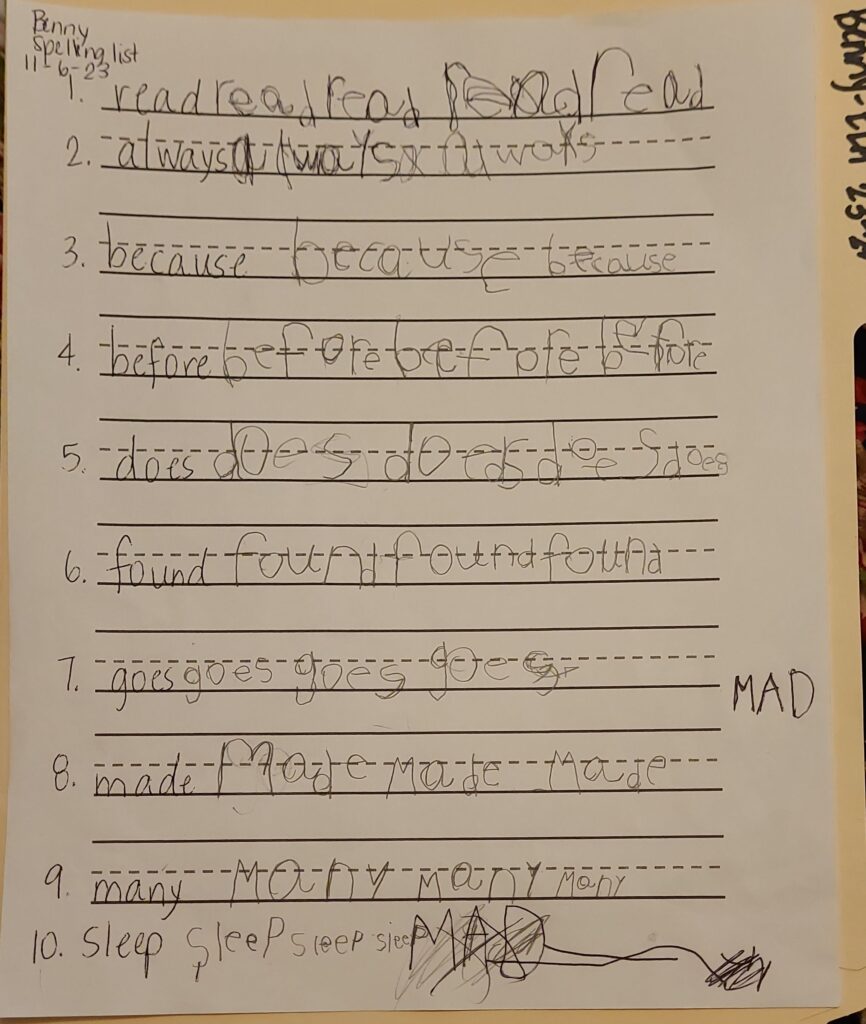 Benny
Spelling list
11-6-23
1. read read read read read
2. always always always
3. because because because
4. before before before before
5. does does does does does
6. found found found found
7. goes goes goes goes
MAD
8. made made made made
9. many many many many
10. sleep sleep sleep sleep MAD